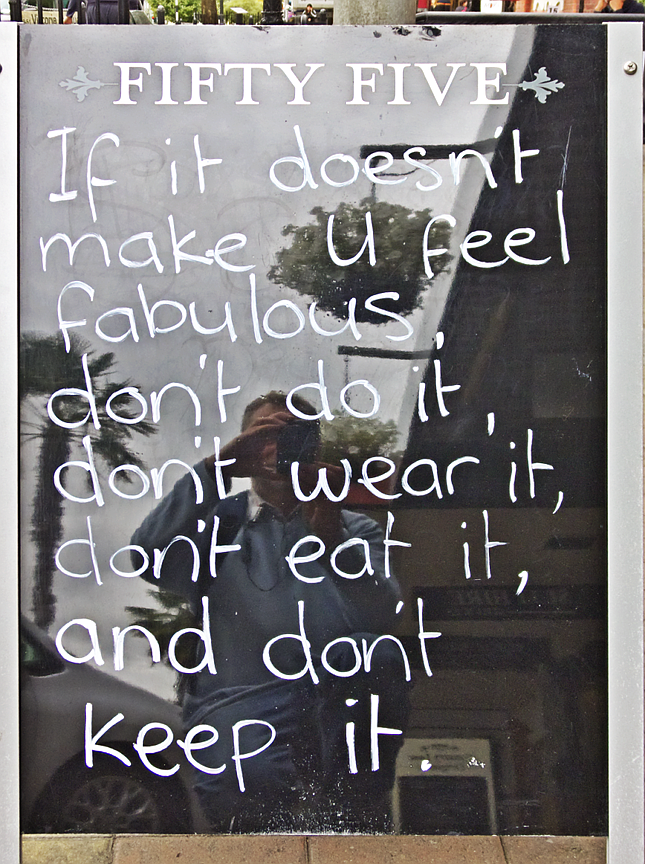 FIFTY FIVE
If it doesn't
make U feel
fabulous,
don't do it,
don't wear it,
don't eat it,
and don't
keep it.